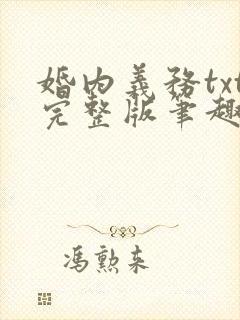 婚内義務txt
完整版筆趣
馮勲来